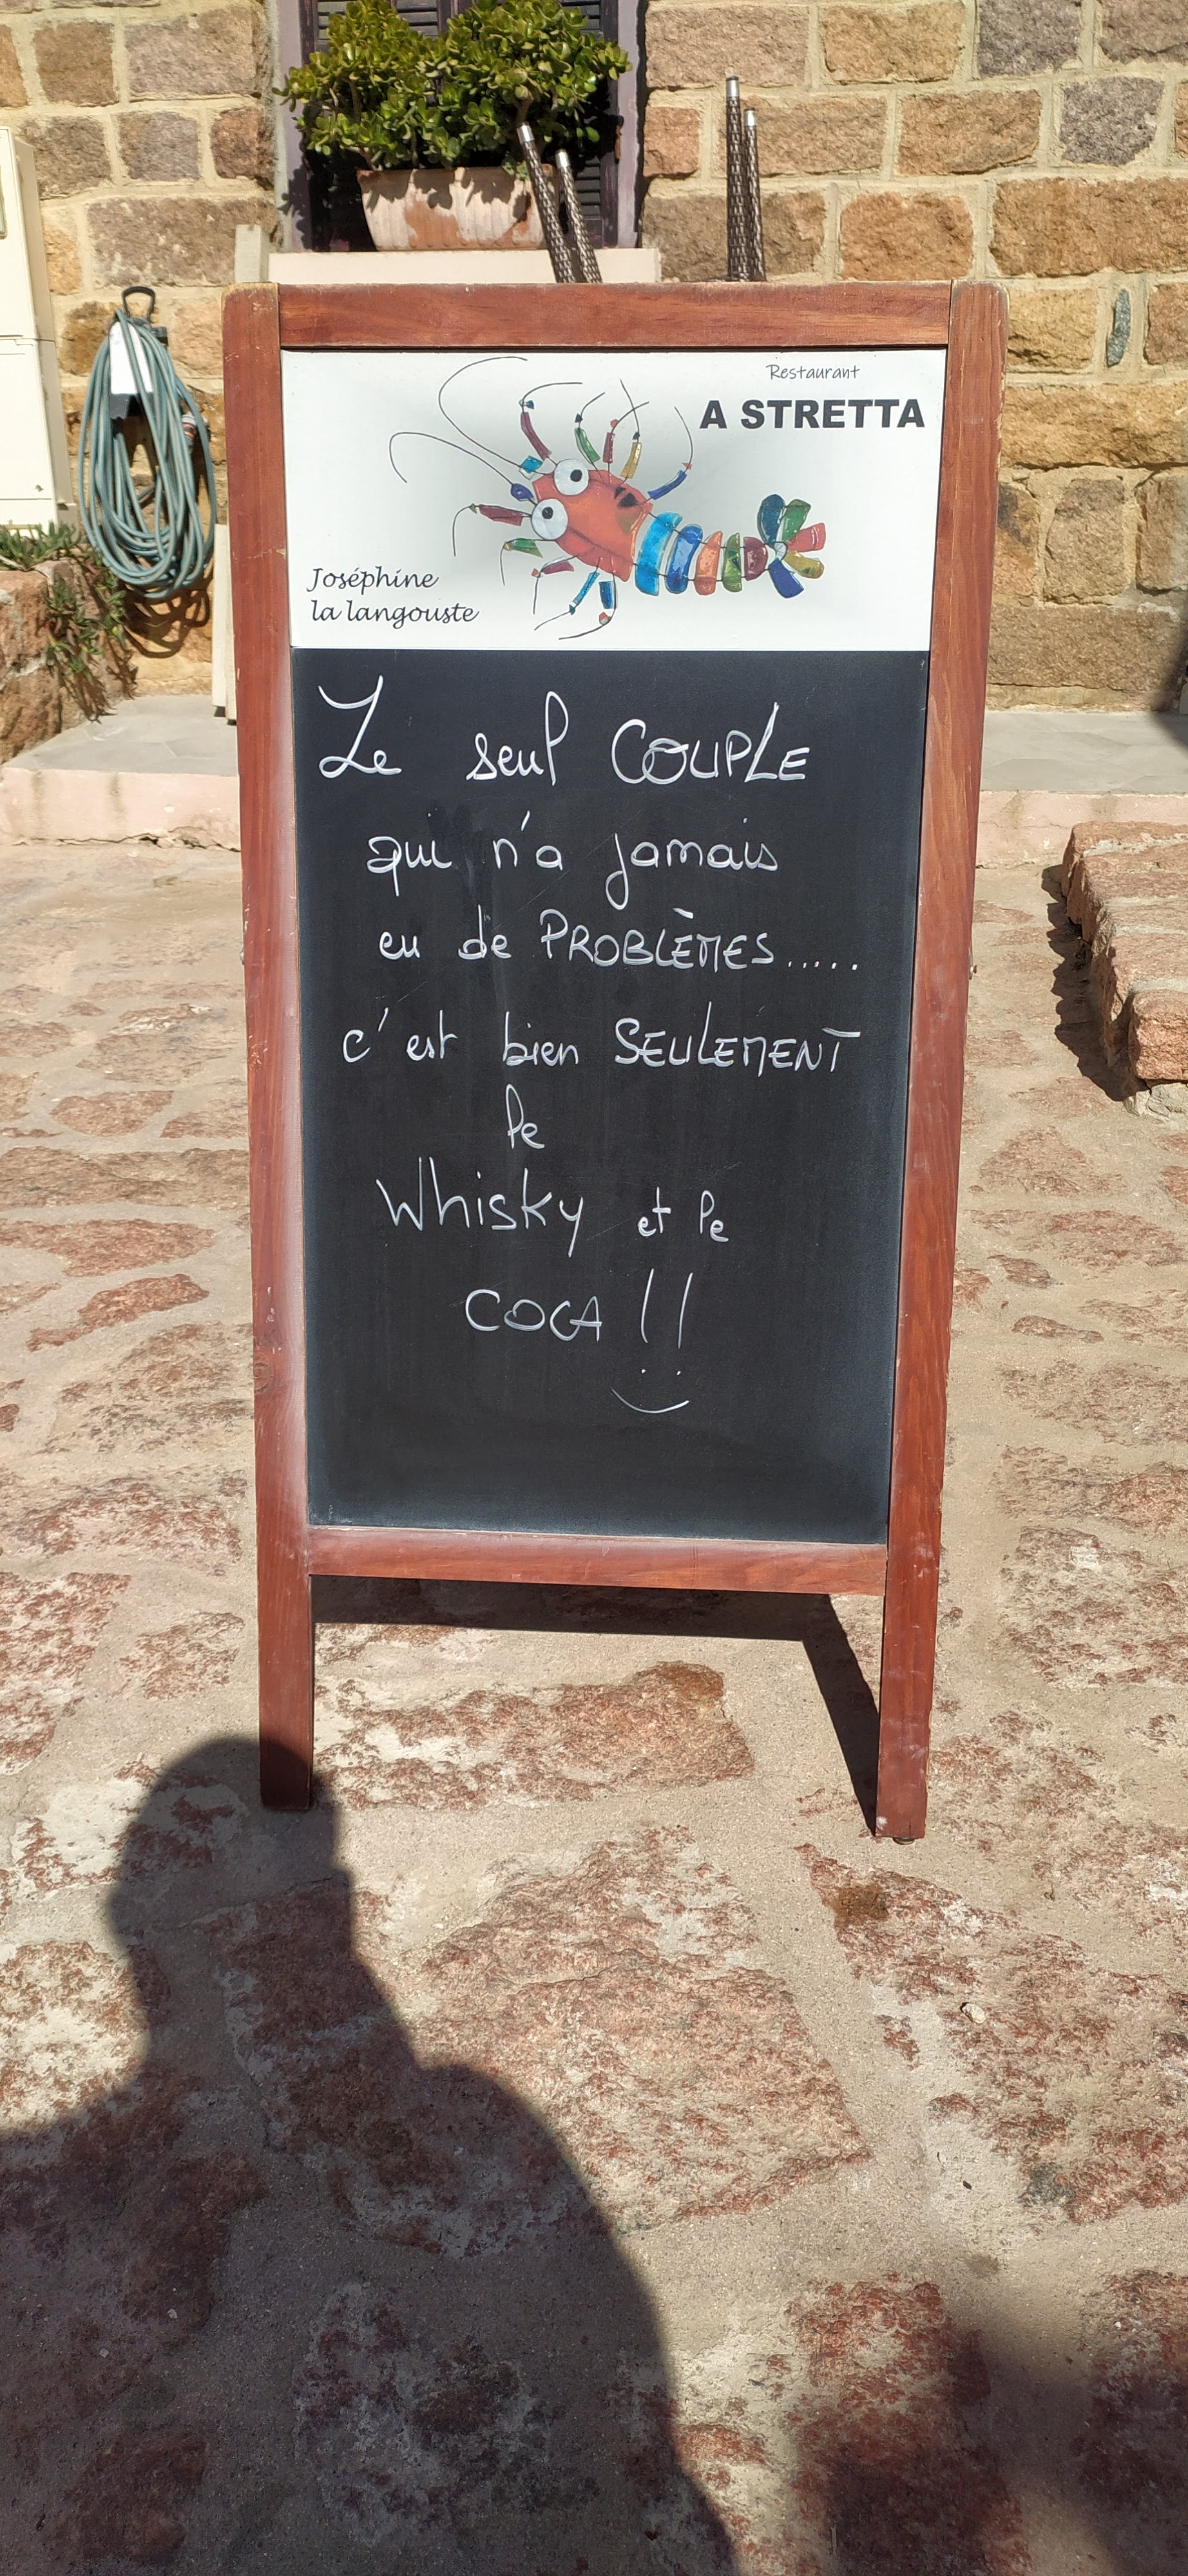 Restaurant
A STRETTA
Joséphine
la langouste
Le seul COUPLE
qui n'a jamais
eu de PROBLÈMES.....
c'est bien SEULEMENT
le
Whisky et le
COCA !!